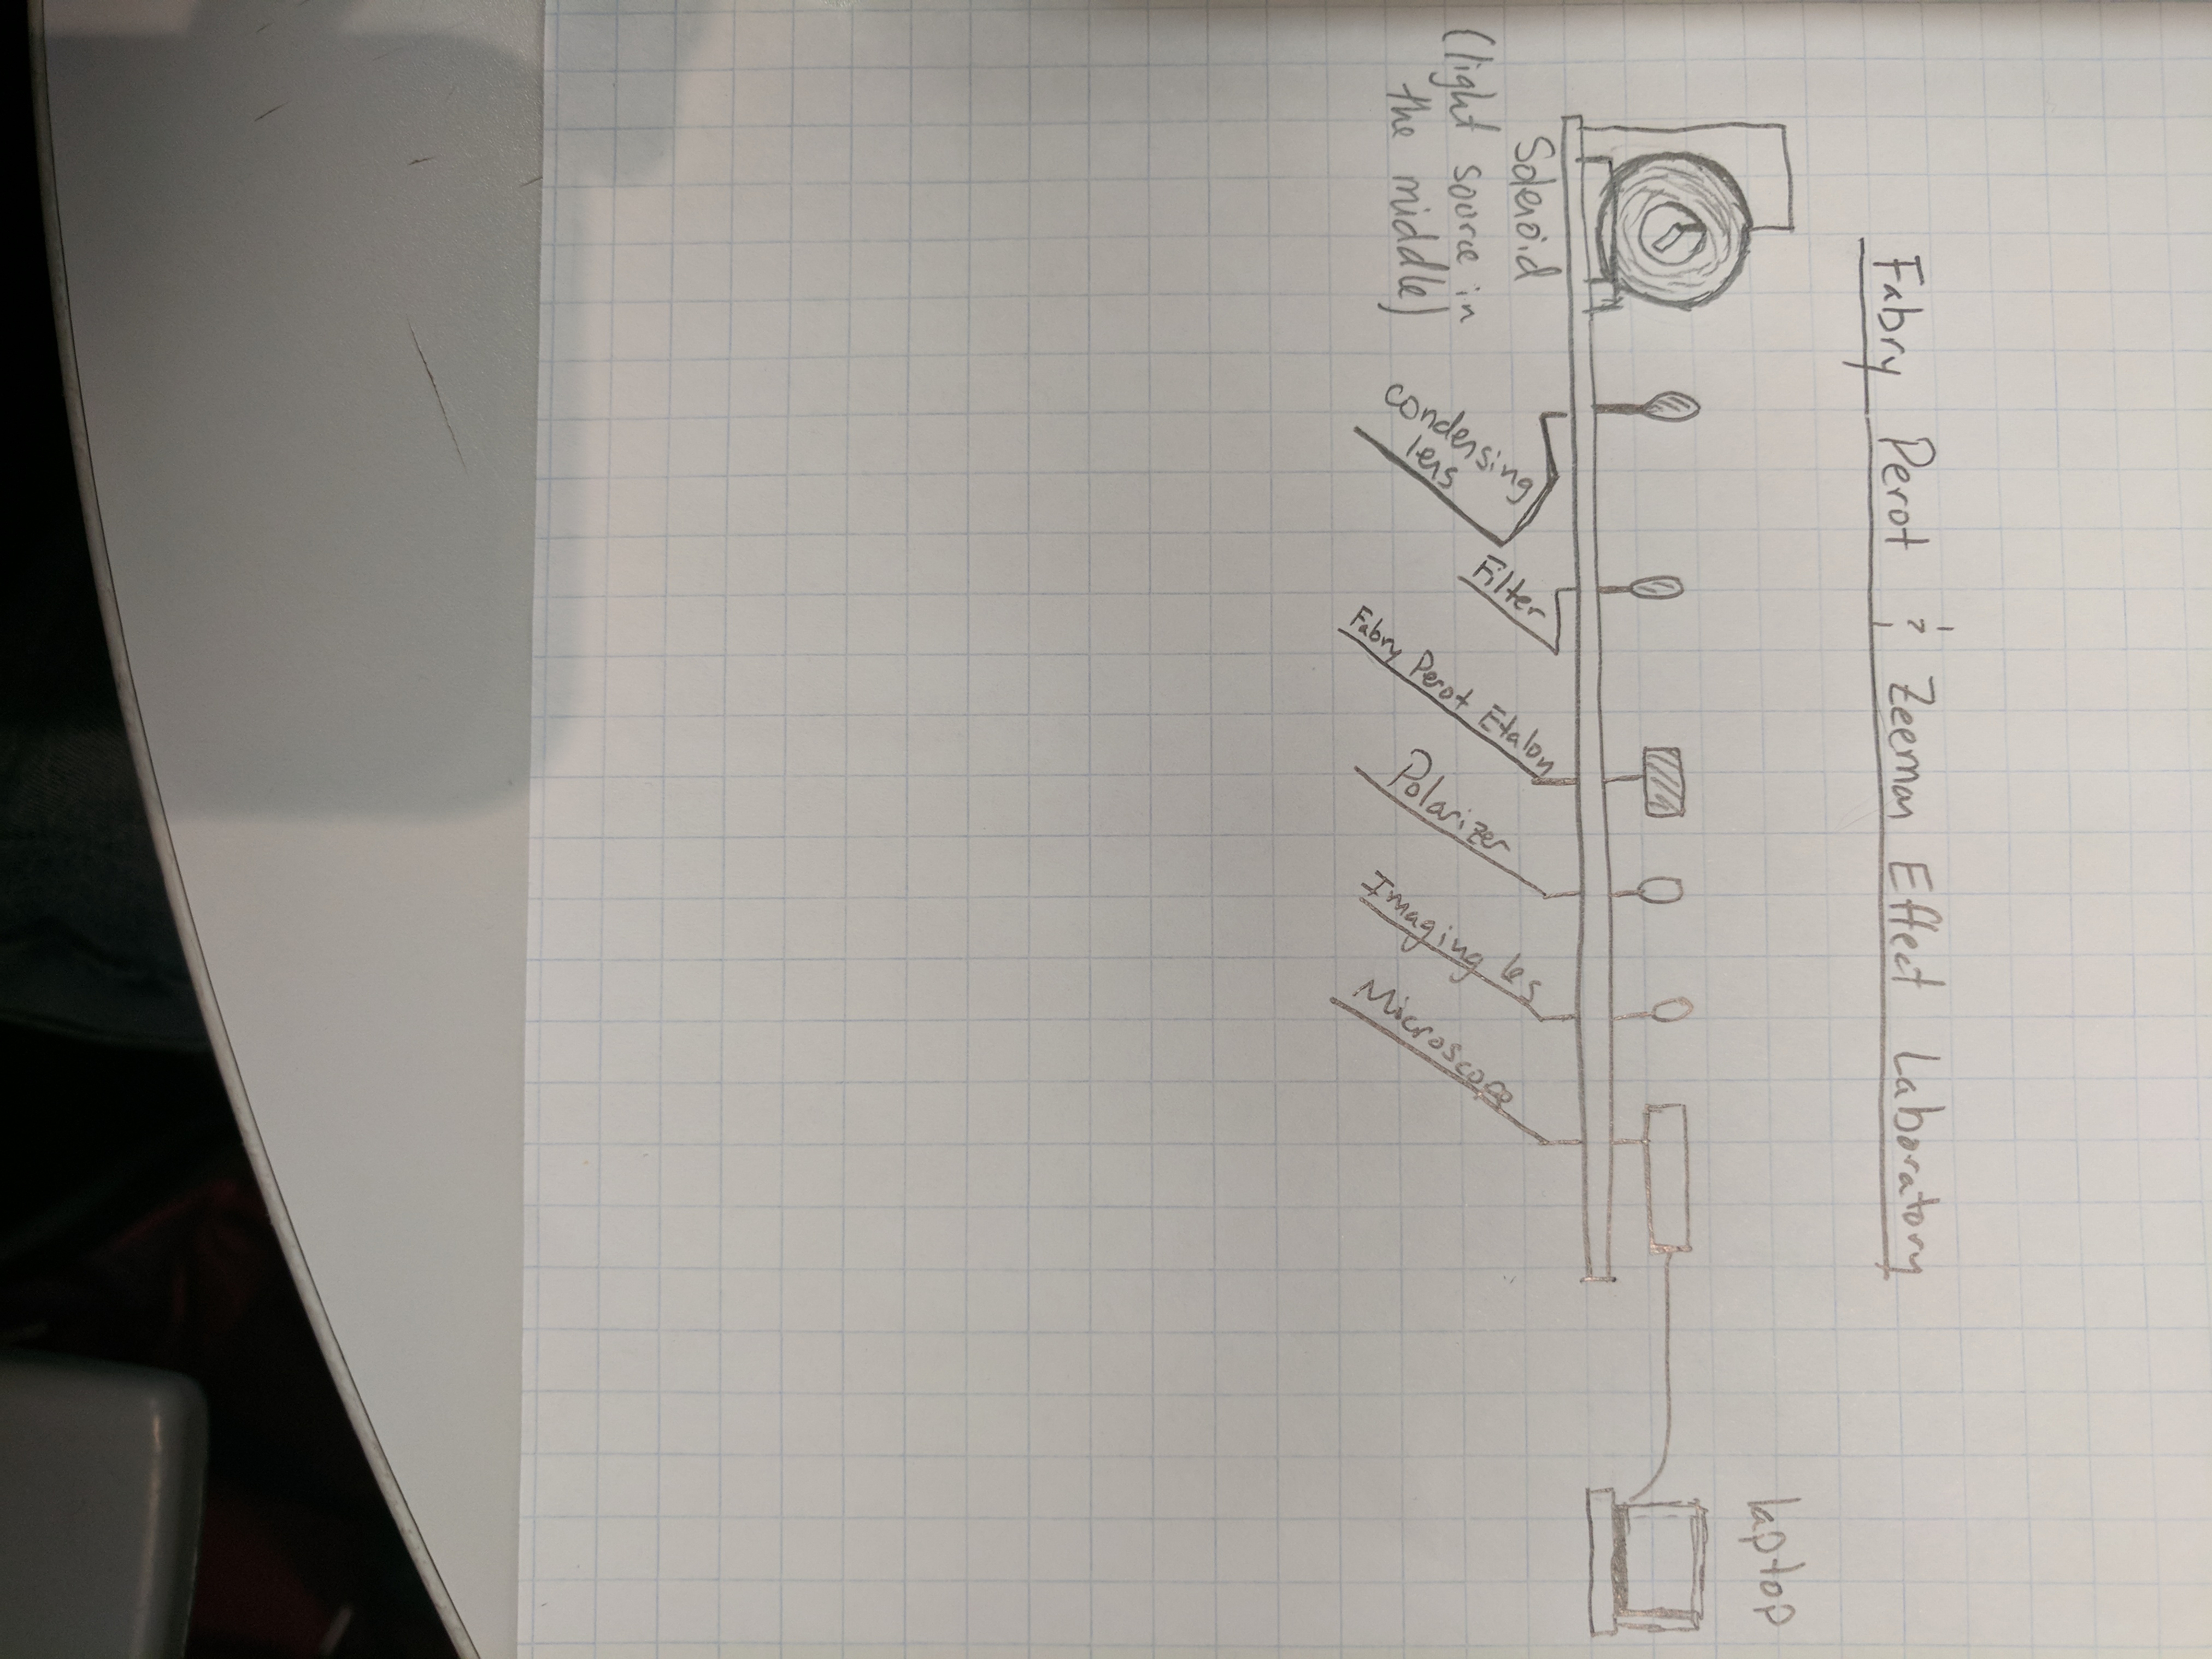 Fabry Perot & Zeeman Effect Laboratory
laptop
Solenoid
(light source in
the middle)
condensing
lens
Filter
Fabry Perot Etalon
Polarizer
Imaging les
Microscope